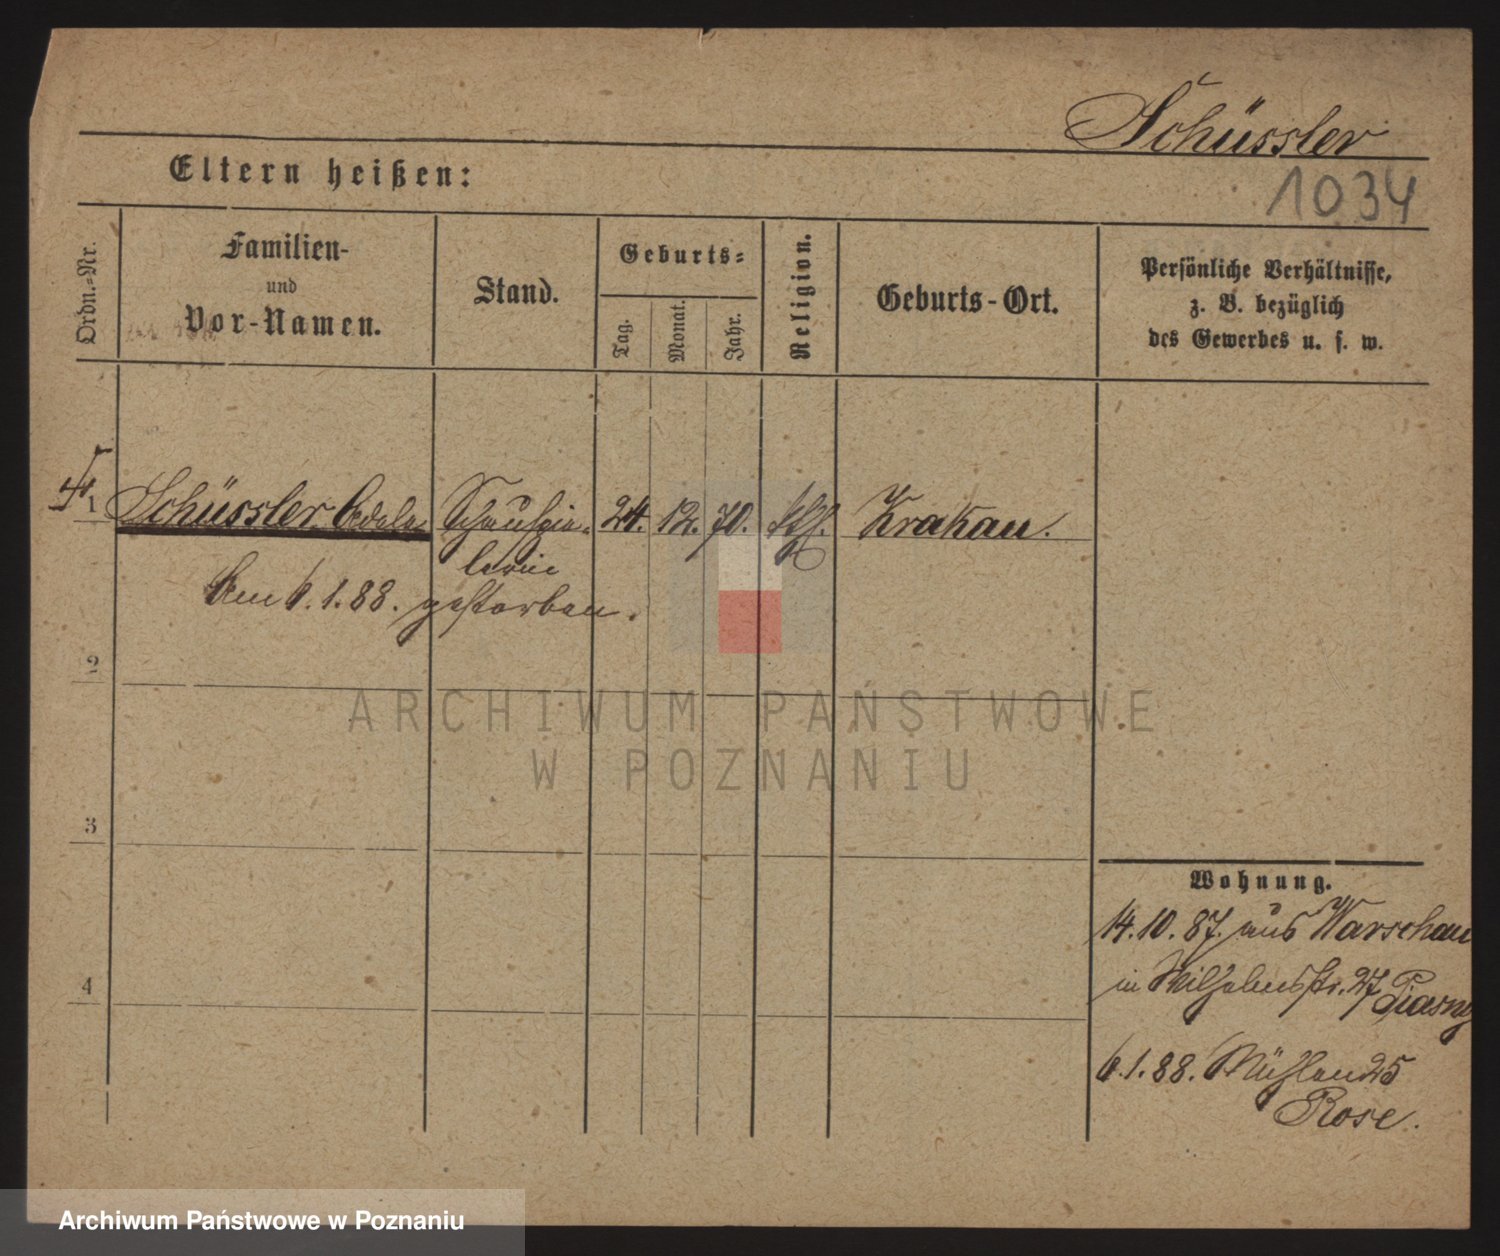 Schüssler
1034
Eltern heißen:
Ordn.-Nr.
Familien-
und
Vor-Namen.
Stand.
Geburts-
Tag.
Monat.
Jahr.
Religion.
Geburts-Ort.
Persönliche Verhältnisse,
z. B. bezüglich
des Gewerbes u. s. w.
1 Schüssler Adele Schauspie- 24. 12. 70. kth. Krakau.
lerin
Am 6.1.88. gestorben.
2
3
4
Wohnung.
14.10.87. aus Warschau
in Wilhelmsstr. 27
6.1.88. Mühlen 25
Rose.
ARCHIWUM PAŃSTWOWE
W POZNANIU
Archiwum Państwowe w Poznaniu